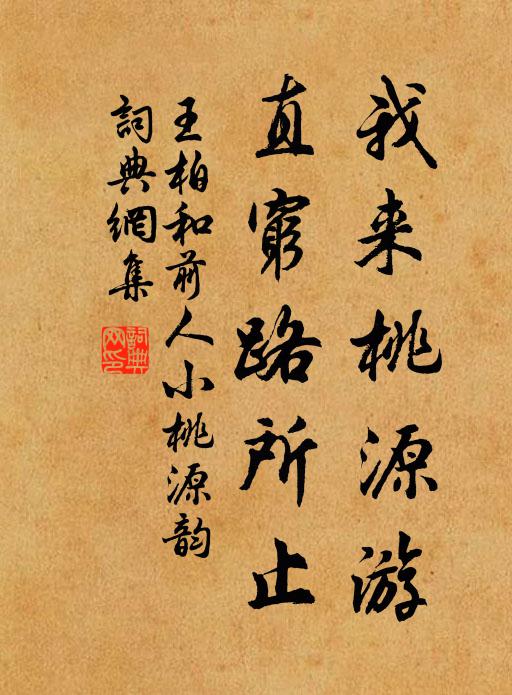 我来桃源游
直窮路所止
王柏和前人小桃源韵
詞典網集
詞典网印